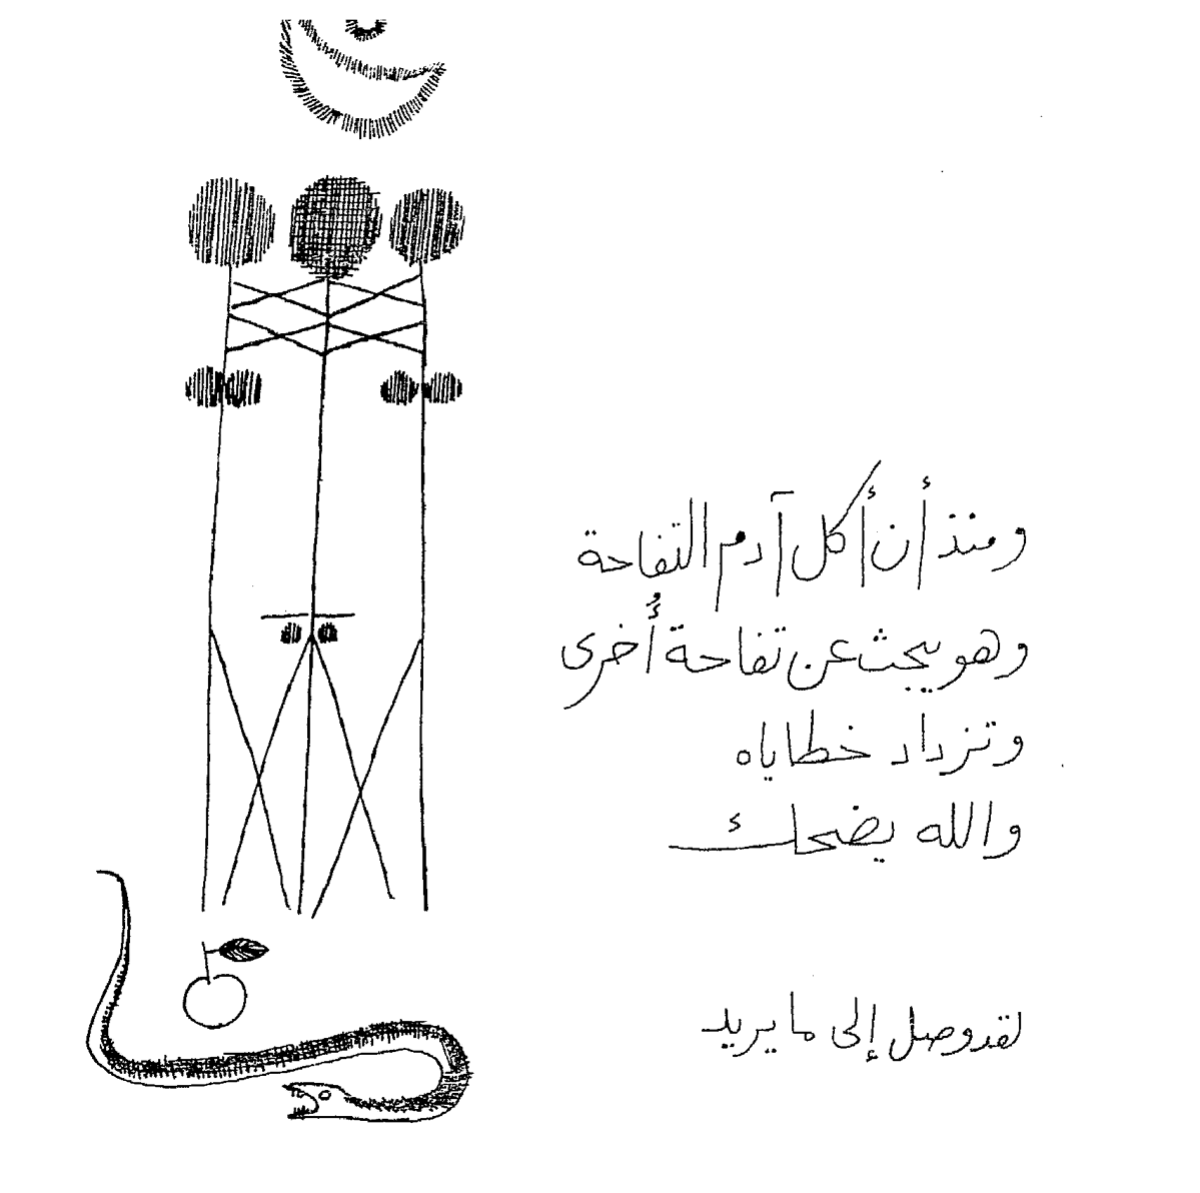 ومنذ أن أكل آدم التفاحة
وهو يبحث عن تفاحة أُخرى
وتزداد خطاياه
والله يضحك
لقد وصل إلى ما يريد